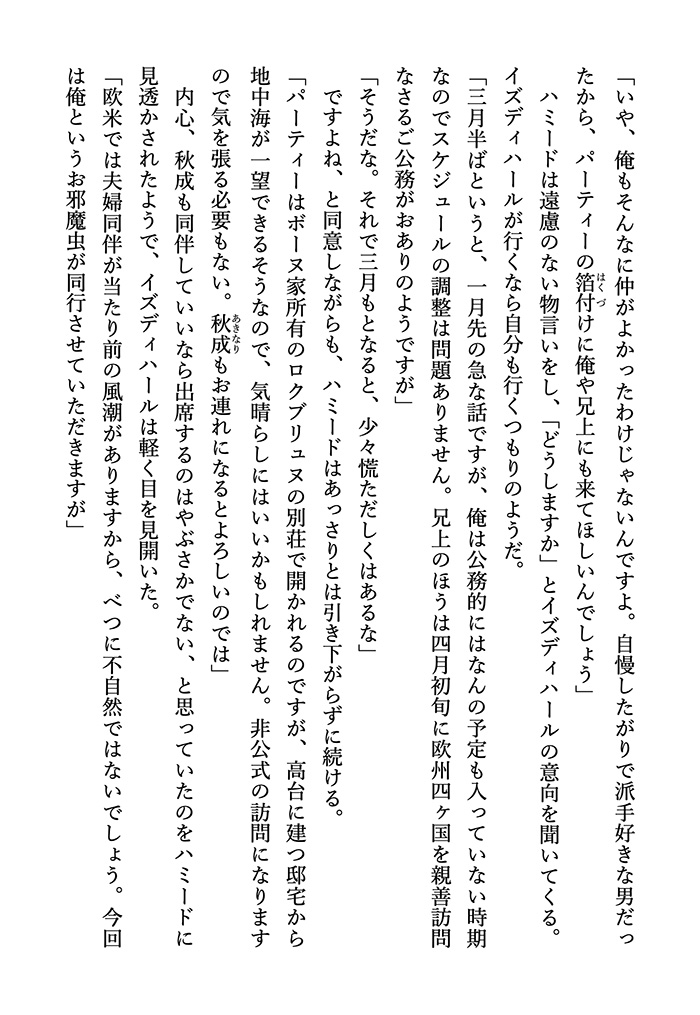 「いや、俺もそんなに仲がよかったわけじゃないんですよ。自慢したがりで派手好きな男だっ
たから、パーティーの箔付けに俺や兄上にも来てほしいんでしょう」
ハミードは遠慮のない物言いをし、「どうしますか」とイズディハールの意向を聞いてくる。
イズディハールが行くなら自分も行くつもりのようだ。
「三月半ばというと、一月先の急な話ですが、俺は公務的にはなんの予定も入っていない時期
なのでスケジュールの調整は問題ありません。兄上のほうは四月初旬に欧州四ヶ国を親善訪問
なさるご公務がおありのようですが」
「そうだな。それで三月もとなると、少々慌ただしくはあるな」
ですよね、と同意しながらも、ハミードはあっさりとは引き下がらずに続ける。
「パーティーはボーヌ家所有のロクブリュヌの別荘で開かれるのですが、高台に建つ邸宅から
地中海が一望できるそうなので、気晴らしにはいいかもしれません。非公式の訪問になります
ので気を張る必要もない。秋成もお連れになるとよろしいのでは」
内心、秋成も同伴していいなら出席するのはやぶさかでない、と思っていたのをハミードに
見透かされたようで、イズディハールは軽く目を見開いた。
「欧米では夫婦同伴が当たり前の風潮がありますから、べつに不自然ではないでしょう。今回
は俺というお邪魔虫が同行させていただきますが」